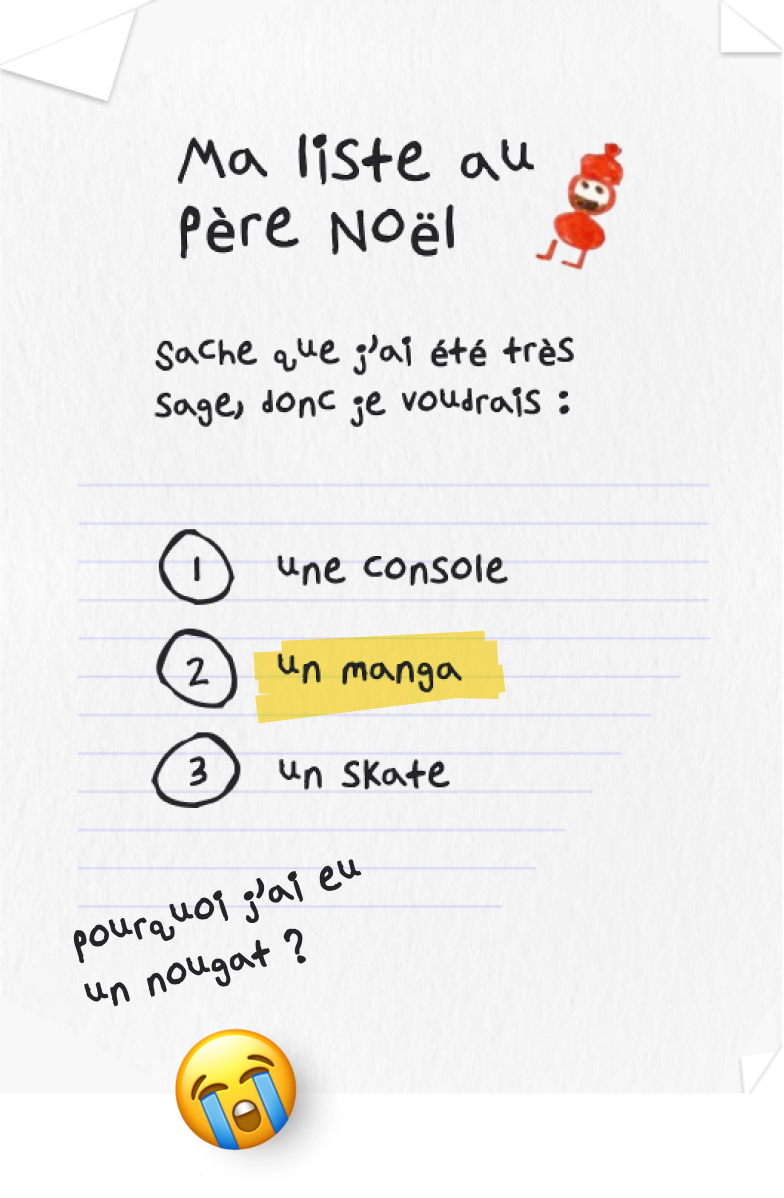 Ma liste au
Père Noël
Sache que j'ai été très
sage, donc je voudrais :
1 une console
2 un manga
3 un skate
pourquoi j'ai eu
un nougat ?